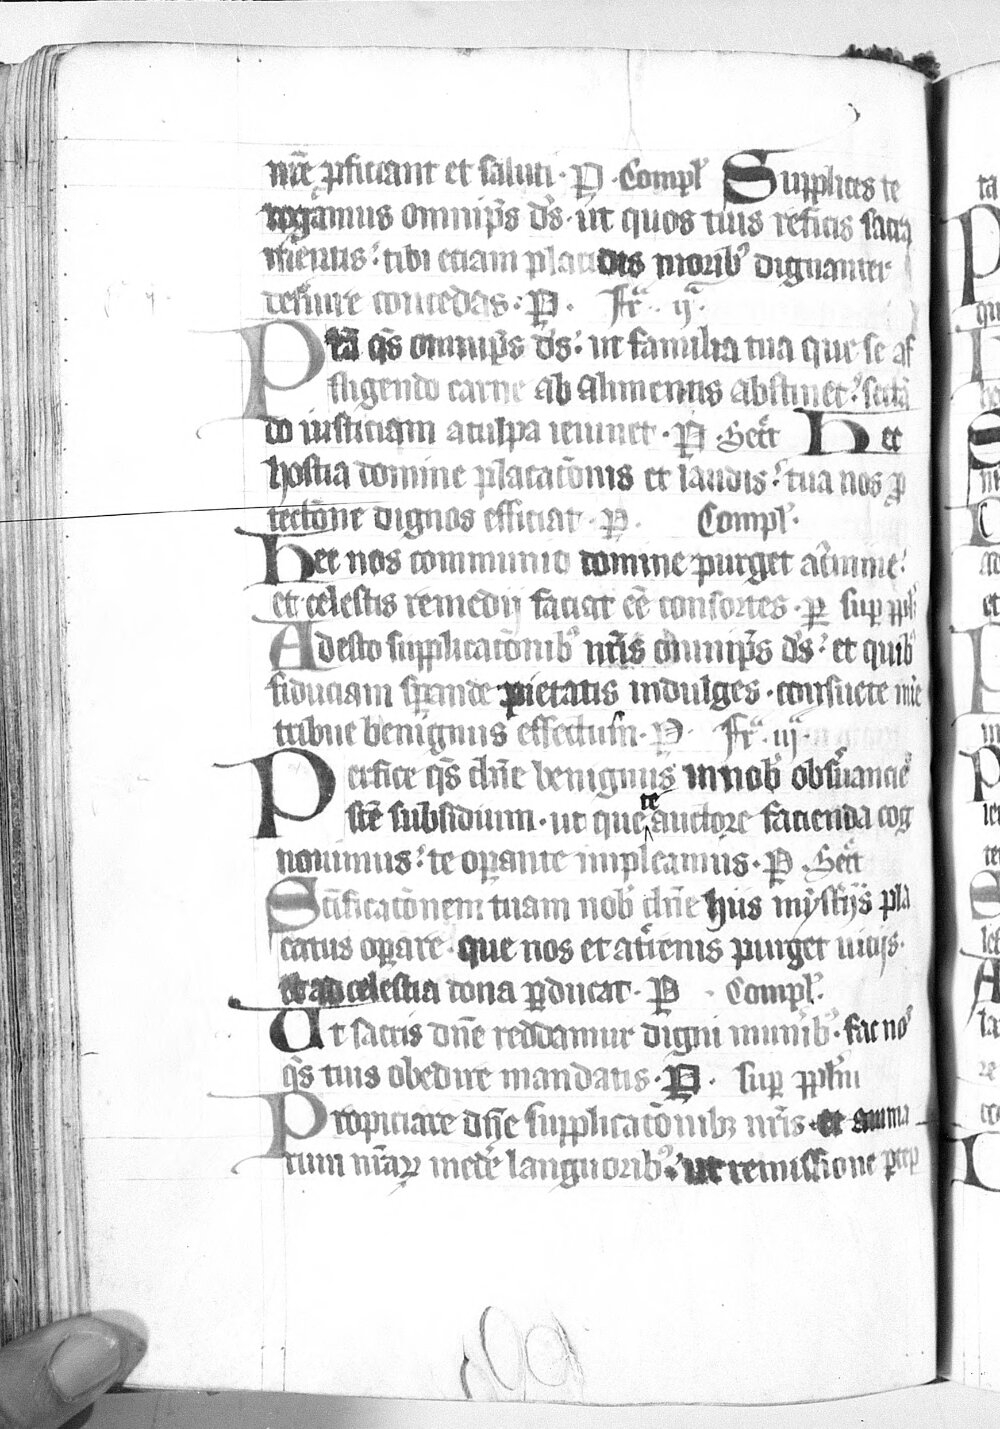 nr̄e ꝓficiant et saluti · P · Compl̕ Supplices te
rogamus omnip̄s d̄s · ut quos tuis reficis sacra
mentis : tibi etiam placitis morib᾽ dignanter
deseruire concedas : P · Fr̄ · ij ·
Pr̄a q̄s omnip̄s d̄s : ut familia tua que se af
fligendo carne ab alimentis abstinet : sectā
do iusticiam a culpa ieiunet · P · Secr̄ Hec
hostia domine placatōnis et laudis : tua nos ꝓ
tectōne dignos efficiat · P · Compl̕ ·
Hec nos communio domine purget a crimine :
et celestis remedij faciat eē consortes · P sup ppl̕
Adesto supplicatōnib᾽ nr̄is omnip̄s d̄s : et quib᾽
fiduciam sperande pietatis indulges · consuete mīe
tribue benignus effectum · P · Fr̄ · iij ·
Perfice q̄s dn̄e benignus in nob᾽ obseruancie
sc̄e subsidium · ut que te auctore facienda cog
nouimus : te operante impleamus · P Secr̄
Sc̄ificatōnem tuam nob᾽ dn̄e hiis mysterijs pla
catus operare · que nos et a terrenis purget uicijs ·
et ad celestia dona ꝑducat · P · Compl̕ ·
Ut sacris dn̄e reddamur digni munerib᾽ · fac nos
q̄s tuis obedire mandatis · P · sup pplm̄
Propiciare dn̄e supplicatōnibꝫ nr̄is · et anima
rum nr̄aꝝ medere languorib᾽ : ut remissione ꝑcep